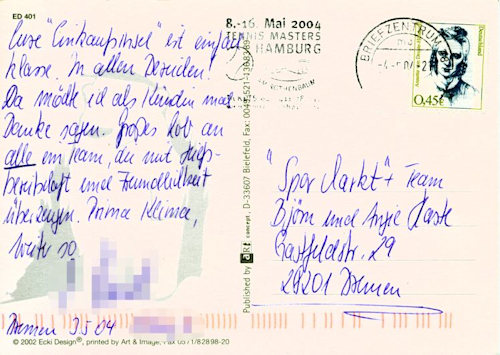 ED 401
Eure "Einkaufsinsel" ist einfach
klasse. In allen Bereichen!
Da möcht ich als Kundin mal
Danke sagen. Großes Lob an
alle ein Team, die mit Hilfs-
bereitschaft und Freundlichkeit
überzeugen. Prima Klima,
weiter so
Bremen 3.5.04
© 2002 Ecki Design®, printed by Art & Image, Fax 0571/82898-20
Published by art concept, D-33607 Bielefeld, Fax: 0049-521-1368369
8.-16. Mai 2004
TENNIS MASTERS
HAMBURG
AM ROTHENBAUM
BRIEFZENTRUM
Deutschland
0,45€
"Spar Markt" + Team
Björn und Antje Haste
Gastfeldstr. 29
29201 Bremen